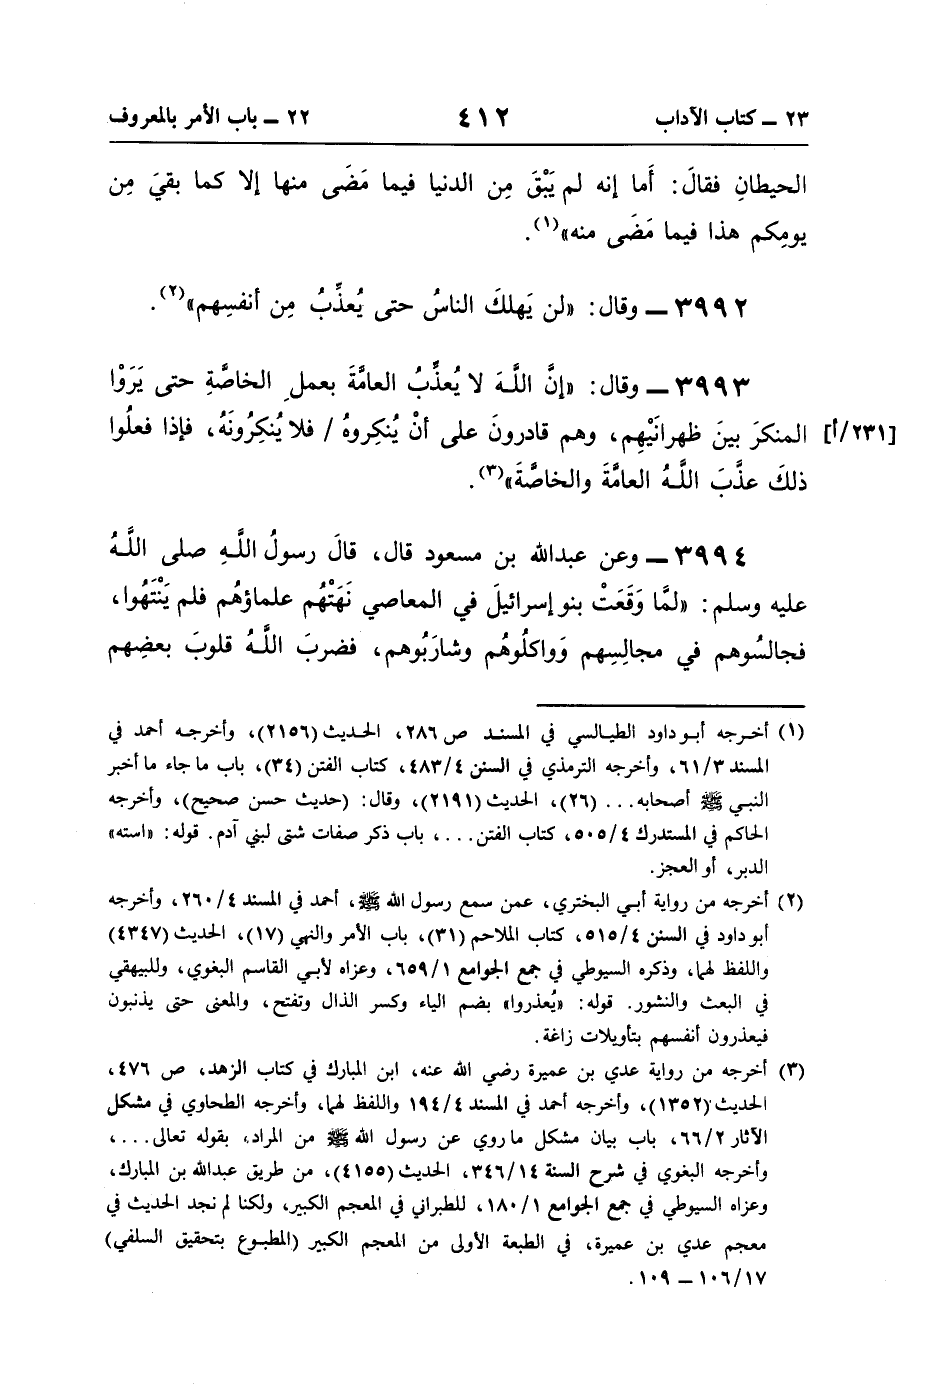 ٢٣ ــ كتاب الآداب ٤١٢ ٢٢ ــ باب الأمر بالمعروف
الحيطانِ فقالَ: أَما إنه لم يَبْقَ مِن الدنيا فيما مَضَى منها إلا كما بقيَ مِن
يومِكم هذا فيما مَضَى منه»(١).
٣٩٩٢ ــ وقال: «لن يَهلكَ الناسُ حتى يُعذِّبُ مِن أنفسِهم»(٢).
٣٩٩٣ ــ وقال: «إنَّ اللَّهَ لا يُعذِّبُ العامَّةَ بعملِ الخاصَّةِ حتى يَرَوْا
[٢٣١/أ] المنكرَ بينَ ظهرانَيْهِم، وهم قادرونَ على أنْ يُنكِروهُ / فلا يُنكِرُونَهُ، فإذا فعلُوا
ذلكَ عذَّبَ اللَّهُ العامَّةَ والخاصَّةَ»(٣).
٣٩٩٤ ــ وعن عبدالله بن مسعود قال، قالَ رسولُ اللَّهِ صلى اللَّهُ
عليه وسلم: «لمَّا وَقَعَتْ بنو إسرائيلَ في المعاصي نَهَتْهُم علماؤهُم فلم يَنْتَهُوا،
فجالسُوهم في مجالِسِهم وَواكلُوهُم وشارَبُوهم، فضربَ اللَّهُ قلوبَ بعضِهم
(١) أخرجه أبو داود الطيالسي في المسند ص ٢٨٦، الحديث (٢١٥٦)، وأخرجه أحمد في
المسند ٦١/٣، وأخرجه الترمذي في السنن ٤٨٣/٤، كتاب الفتن (٣٤)، باب ما جاء ما أخبر
النبي ﷺ أصحابه... (٢٦)، الحديث (٢١٩١)، وقال: (حديث حسن صحيح)، وأخرجه
الحاكم في المستدرك ٥٠٥/٤، كتاب الفتن...، باب ذكر صفات شتى لبني آدم. قوله: «استه»
الدبر، أو العجز.
(٢) أخرجه من رواية أبي البختري، عمن سمع رسول الله ﷺ، أحمد في المسند ٢٦٠/٤، وأخرجه
أبو داود في السنن ٥١٥/٤، كتاب الملاحم (٣١)، باب الأمر والنهي (١٧)، الحديث (٤٣٤٧)
واللفظ لهما، وذكره السيوطي في جمع الجوامع ٦٥٩/١، وعزاه لأبي القاسم البغوي، وللبيهقي
في البعث والنشور. قوله: «يُعذروا» بضم الياء وكسر الذال وتفتح، والمعنى حتى يذنبون
فيعذرون أنفسهم بتأويلات زاغة.
(٣) أخرجه من رواية عدي بن عميرة رضي الله عنه، ابن المبارك في كتاب الزهد، ص ٤٧٦،
الحديث (١٣٥٢)، وأخرجه أحمد في المسند ١٩٤/٤ واللفظ لهما، وأخرجه الطحاوي في مشكل
الآثار ٦٦/٢، باب بيان مشكل ما روي عن رسول الله ﷺ من المراد، بقوله تعالى...،
وأخرجه البغوي في شرح السنة ٣٤٦/١٤، الحديث (٤١٥٥)، من طريق عبدالله بن المبارك،
وعزاه السيوطي في جمع الجوامع ١٨٠/١، للطبراني في المعجم الكبير، ولكنا لم نجد الحديث في
معجم عدي بن عميرة، في الطبعة الأولى من المعجم الكبير (المطبوع بتحقيق السلفي)
١٠٦/١٧ ــ ١٠٩.